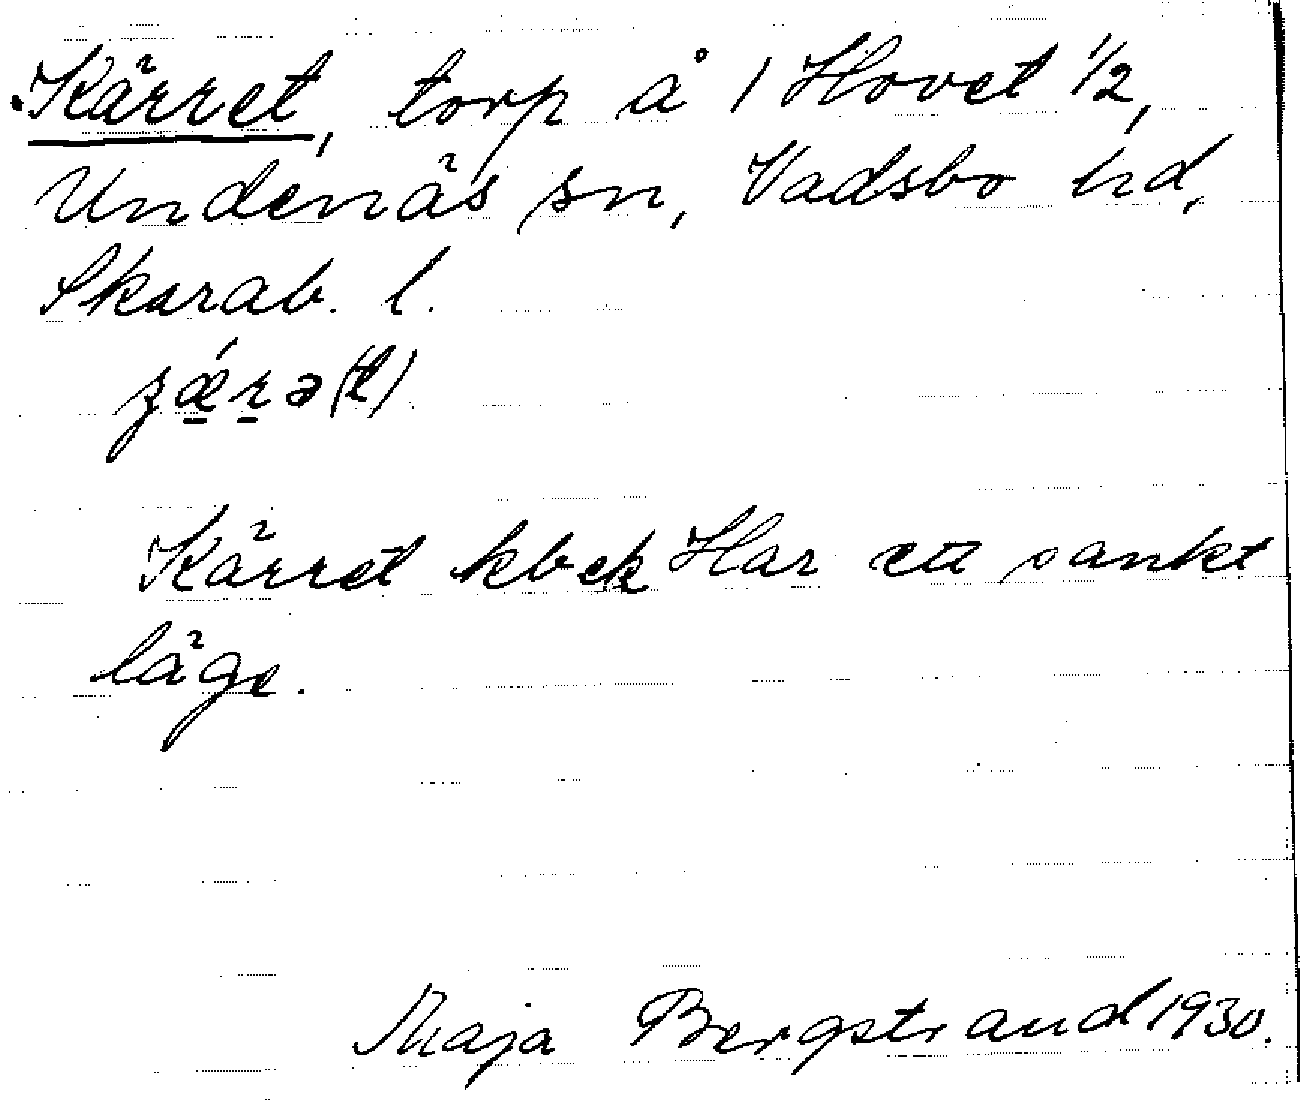 Kärret, torp å 1 Hovet 1/2,
Undenäs sn, Vadsbo hd,
Skarab. l.
ʒǽrə(t)
Kärret kbek Har ett sankt
läge.
Maja Bergstrand 1930.